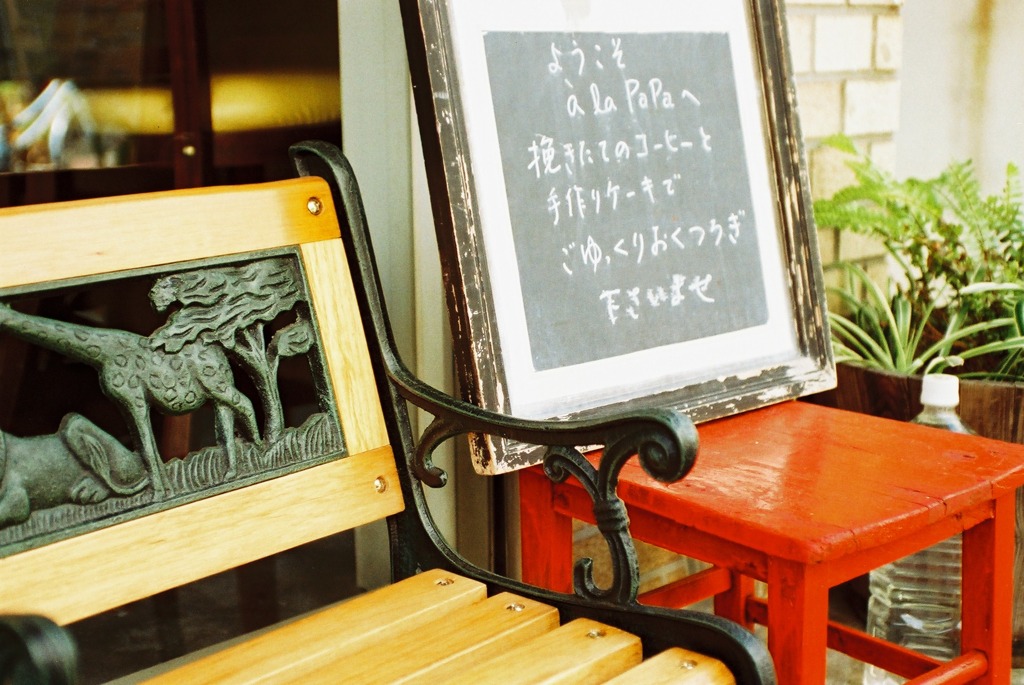 ようこそ
à la PaPaへ
挽きたてのコーヒーと
手作りケーキで
ごゆっくりおくつろぎ
下さいませ